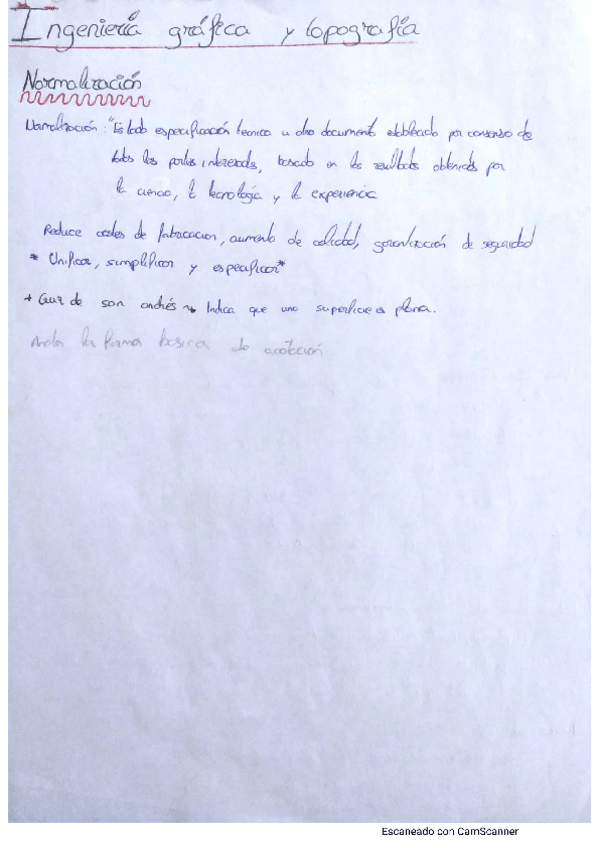 Ingeniería gráfica y topografía
Normalización
Normalización: "Es toda especificación técnica u otro documento establecido por consenso de
todas las partes interesadas, basado en los resultados obtenidos por
la ciencia, la tecnología y la experiencia
Reduce costes de fabricacion, aumento de calidad, garantización de seguridad
* Unificar, simplificar y especificar*
+ Cruz de san andrés ↝ Indica que una superficie es plana.
la forma basica de acotación
Escaneado con CamScanner